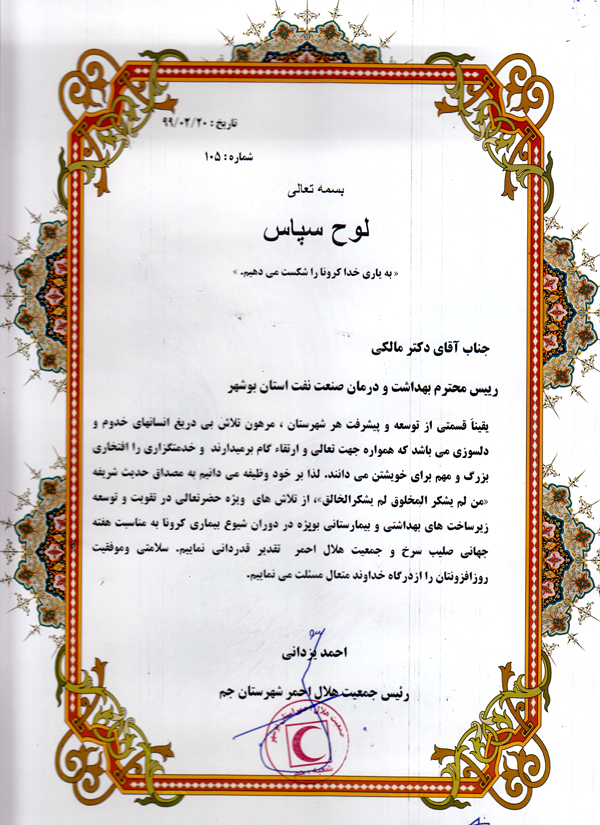 تاریخ : ۹۹/۰۲/۲۰
شماره : ۱۰۵
بسمه تعالی
لوح سپاس
« به یاری خدا کرونا را شکست می دهیم. »
جناب آقای دکتر مالکی
رییس محترم بهداشت و درمان صنعت نفت استان بوشهر
یقیناً قسمتی از توسعه و پیشرفت هر شهرستان ، مرهون تلاش بی دریغ انسانهای خدوم و
دلسوزی می باشد که همواره جهت تعالی و ارتقاء گام برمیدارند و خدمتگزاری را افتخاری
بزرگ و مهم برای خویشتن می دانند. لذا بر خود وظیفه می دانیم به مصداق حدیث شریفه
«من لم یشکر المخلوق لم یشکرالخالق»، از تلاش های ویژه حضرتعالی در تقویت و توسعه
زیرساخت های بهداشتی و بیمارستانی بویژه در دوران شیوع بیماری کرونا به مناسبت هفته
جهانی صلیب سرخ و جمعیت هلال احمر تقدیر قدردانی نماییم. سلامتی وموفقیت
روزافزونتان را ازدرگاه خداوند متعال مسئلت می نماییم.
احمد یزدانی
رئیس جمعیت هلال احمر شهرستان جم
جمعیت هلال احمر استان بوشهر